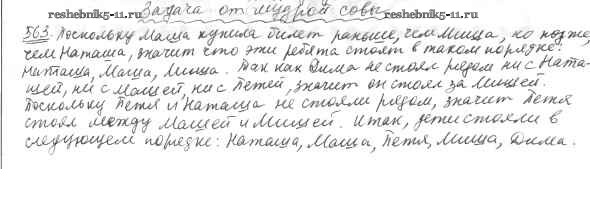 reshebnik5-11.ru
Задача от мудрой совы
563. Поскольку Маша купила билет раньше, чем Миша, но позже,
чем Наташа, значит что эти ребята стоят в таком порядке:
Наташа, Маша, Миша. Так как Дима не стоял рядом ни с Ната-
шей, ни с Машей, ни с Петей, значит он стоял за Мишей.
Поскольку Петя и Наташа не стояли рядом, значит Петя
стоял между Машей и Мишей. Итак, дети стояли в
следующем порядке: Наташа, Маша, Петя, Миша, Дима.
reshebnik5-11.ru